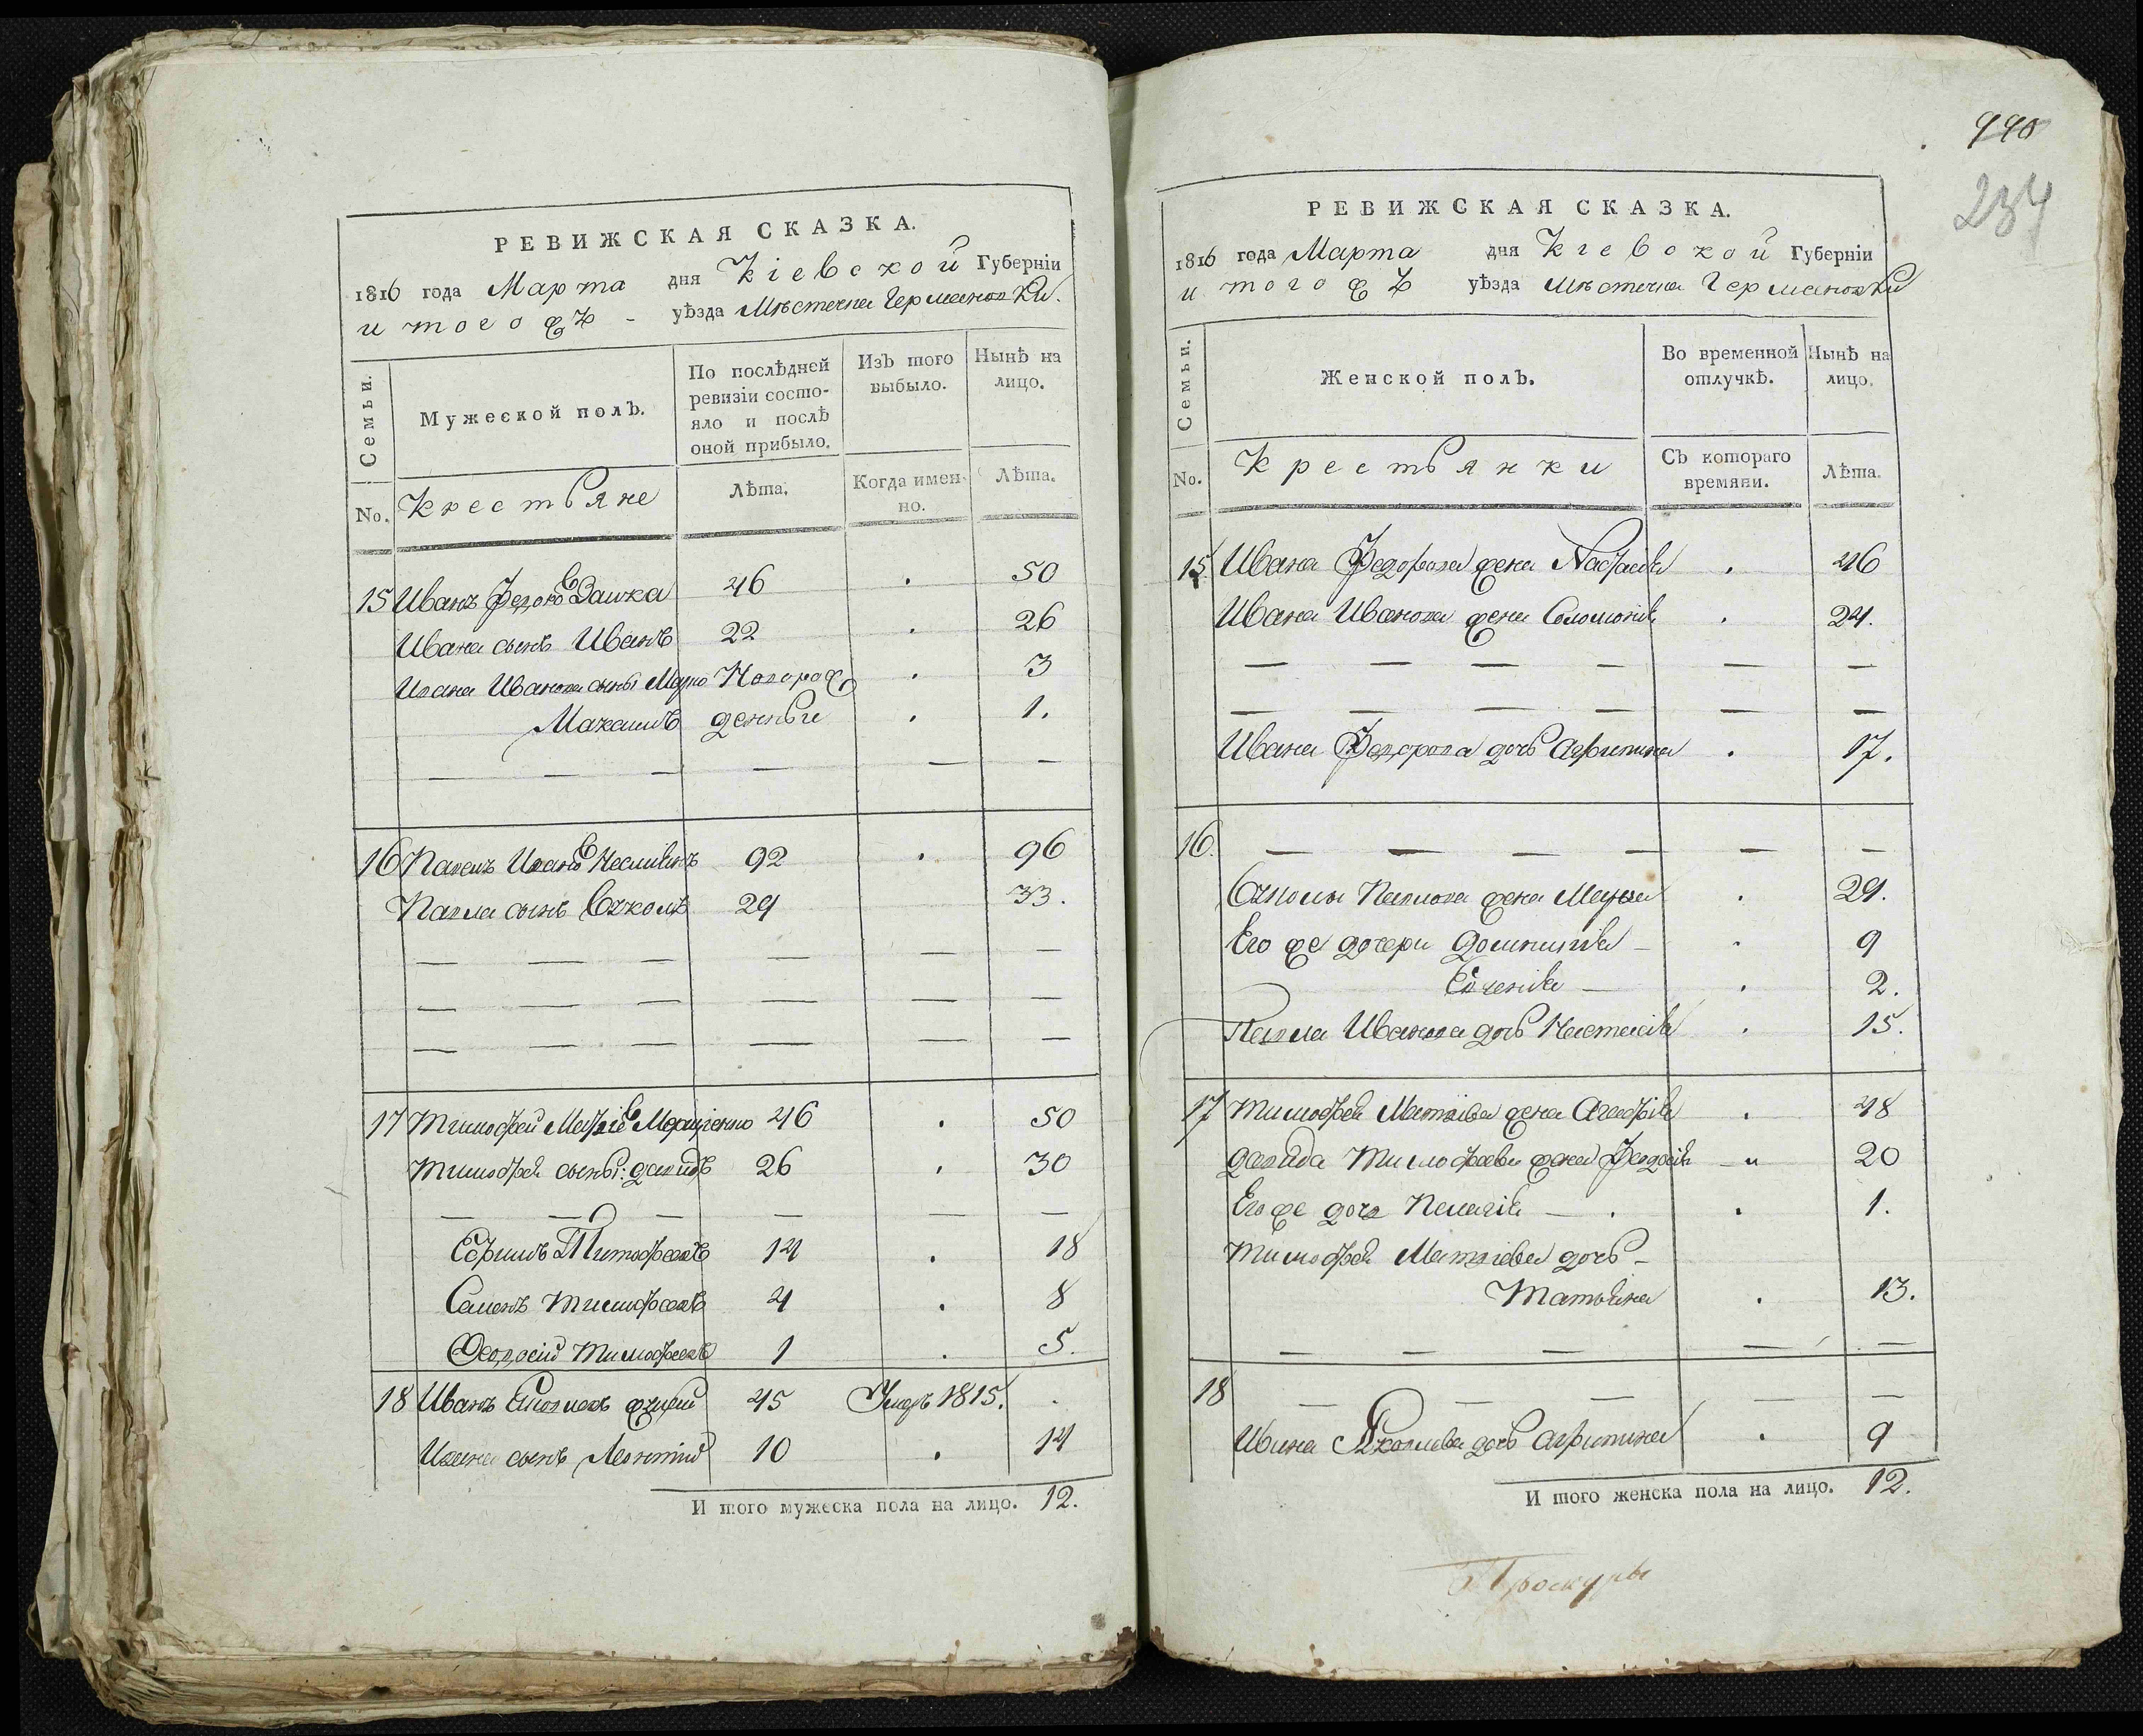 РЕВИЖСКАЯ СКАЗКА.
1816 года Марта дня Кіевской Губерніи
и тогожъ - уѣзда Мѣстечка Германовки.
Семьи.
Мужеской полъ.
По послѣдней ревизіи состояло и послѣ оной прибыло.
Изъ того выбыло.
Нынѣ на лицо.
No. Крестьяне
Лѣта.
Когда именно.
Лѣта.
15 Иванъ Федоровъ Зашка 46 . 50
Ивана сынъ Иванъ 22 . 26
Ивана Иванова сыны Марко Новорож . 3
Макаимъ денные . 1.
16 Павелъ Ивановъ 92 . 96
Павла сынъ 29 33.
17 Тимофей 46 . 50
Тимофея сыны: Давидъ 26 . 30
Ефимъ Тимофеевъ 14 . 18
Семенъ Тимофеевъ 4 . 8
Феодосій Тимофеевъ 1 . 5.
18 Иванъ 45 Умеръ 1815. .
Ивана сынъ Леонтій 10 . 14
И того мужеска пола на лицо. 12.
990
234
РЕВИЖСКАЯ СКАЗКА.
1816 года Марта дня Кіевской Губерніи
и тогожъ уѣзда Мѣстечка Германовки
Семьи.
Женской полъ.
Во временной отлучкѣ.
Нынѣ на лицо.
No. Крестьянки
Съ котораго времяни.
Лѣта.
15. Ивана Федорова жена . 46
Ивана Иванова жена Соломонія . 24.
Ивана Федорова дочь Агрипина . 17.
16.
Павлова жена . 24.
Его же дочери Домникія . 9
. 2.
Павла Иванова дочь Настасія . 15.
17 Тимофея Матвіева жена Агафія . 48
Давида Тимофеева жена Феодосія 20
Его же дочь Пелагія . 1.
Тимофея Матвіева дочь -
Татьяна . 13.
18
Ивана Яковлева дочь Агрипина . 9
И того женска пола на лицо. 12.
Проскуры